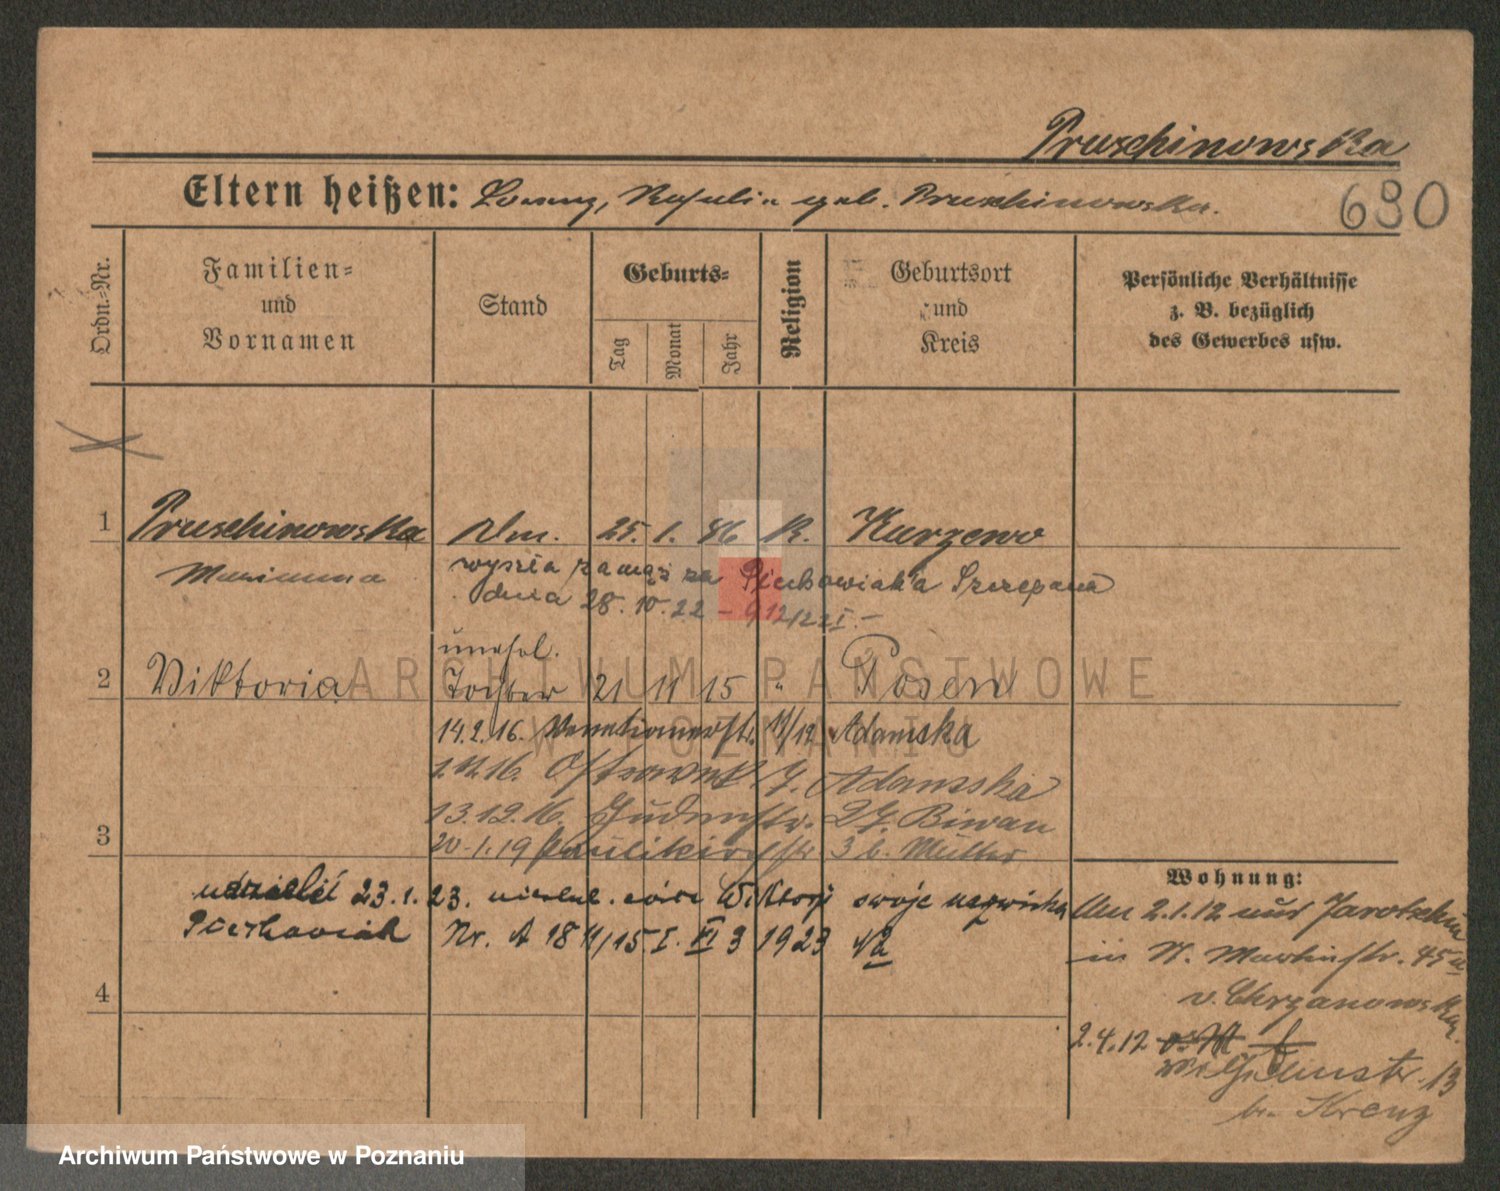 Pruschinowska
Eltern heißen: Lorenz, geb. Pruschinowska.
690
Ordn.-Nr.
Familien- und Vornamen
Stand
Geburts-
Tag
Monat
Jahr
Religion
Geburtsort und Kreis
Persönliche Verhältnisse z. B. bezüglich des Gewerbes usw.
1 Pruschinowska 25. 1. 86 K. Kurzewo
Marianna
wyszła zamąż za Piechowiak'a Szczepana
dnia 28.10.22
unehel.
2 Viktoria Tochter 21 11 15 " Posen
14.2.16. Venetianerstr. 11/12 Adamska
16. 7. Adamska
13.12.16. Judenstr. 27. Biwan
3
20.1.19 Paulikirchstr 3 b. Mutter
udzielił 23.1.23. córce Wiktorji swoje nazwisko
Piechowiak Nr. A 18 /15 I. VI 3 1923
4
Wohnung:
Am 2.1.12 aus Jarotschin
in St. Martinstr. 45a
v. Chrzanowska.
2.4.12
Wilhelmstr. 13
b. Krenz
ARCHIWUM PAŃSTWOWE
W POZNANIU
Archiwum Państwowe w Poznaniu